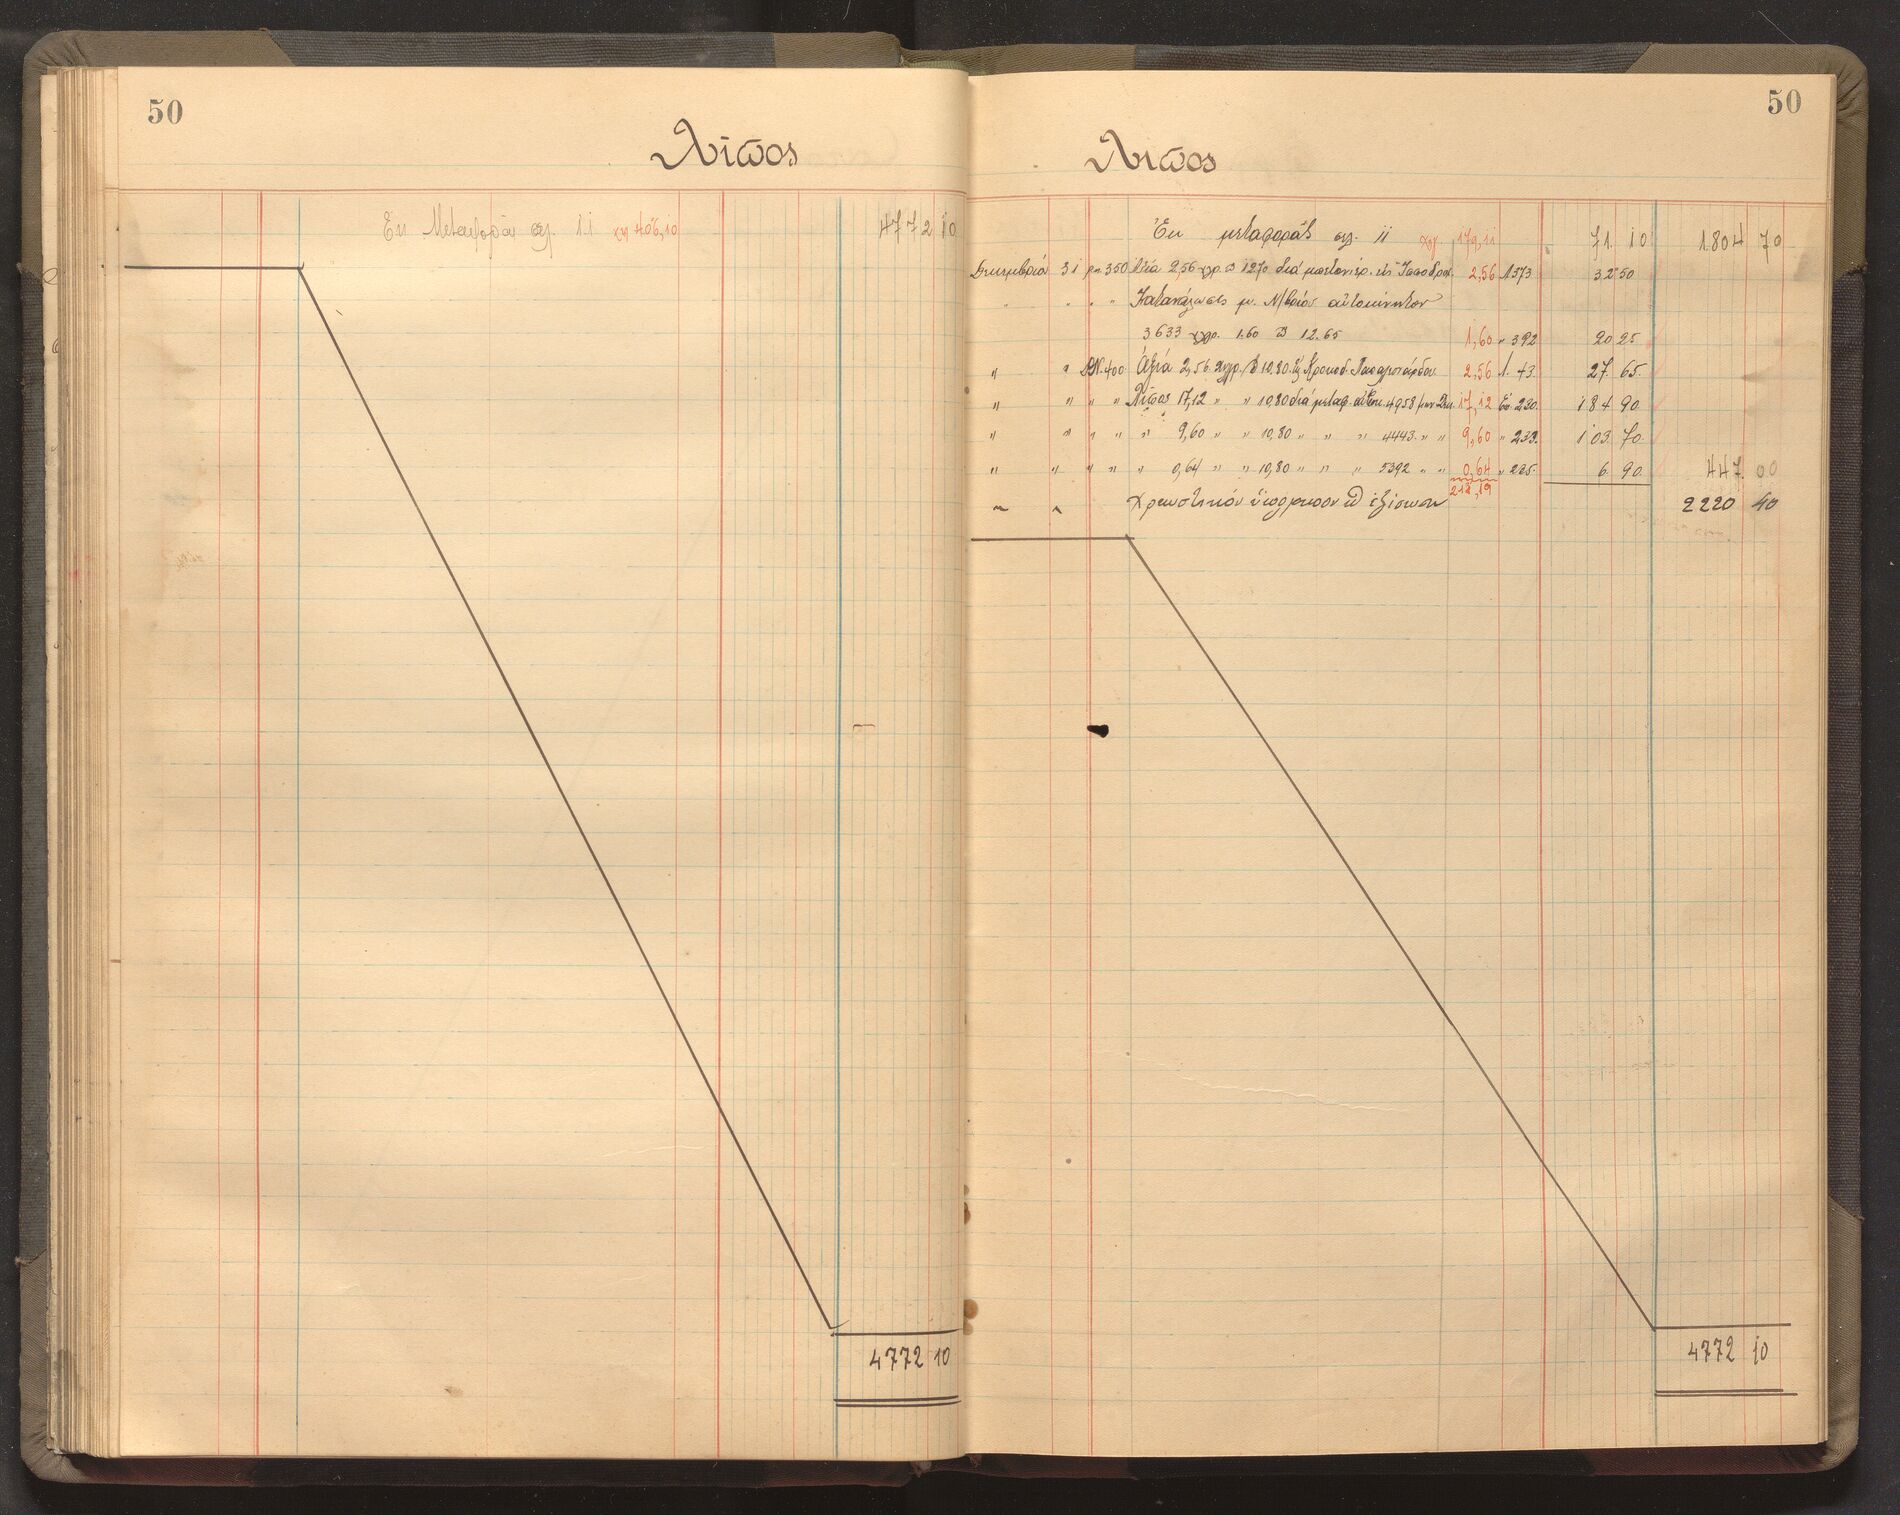 50
Λίπος
Εκ Μεταφοράς σελ. 11 χγ 406,10 4772 10
4772 10
50
Λίπος
Εκ μεταφοράς σελ. 11 χγρ. 179,11 71. 10 1.804 70
Δεκεμβρίου 31 350 Αξία 2,56 χγρ. @ 1270 διά 2,56 1373 32 50
" " " Κατανάλωσις μ. Ν/βρίου αυτοκινήτου
3633 χγρ. 1.60 @ 12.65 1,60 " 392 20 25
" " 400 Αξία 2,56 χγρ. @ 10,80 2,56 1. 43. 27. 65.
" " " " Λίπος 17,12 " " 10,80 διά μεταφ. αυτοκ. 4958 17,12 230. 184 90.
" " " " " 9,60 " " 10,80 " " " 4443. " " 9,60 " 233. 103. 70.
" " " " " 0,64 " " 10,80 " " " 5392 " " 0,64 " 225. 6. 90. 447. 00
212,19
" " Χρεωστικόν υπόλοιπον @ εξίσωσιν 2220 40
4772 10